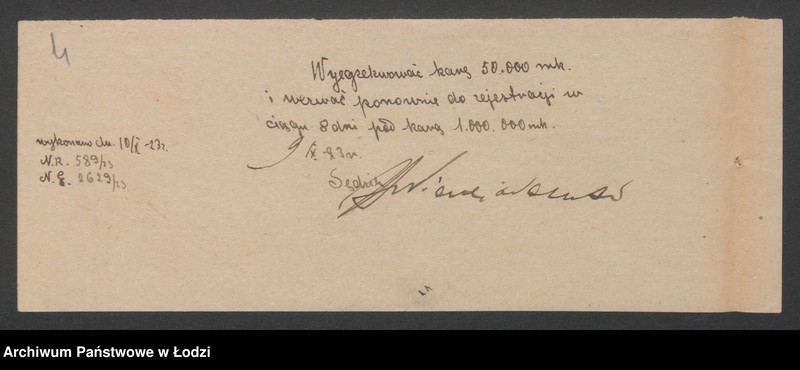 4
Wyegzekwować karę 50.000 mk.
i wezwać ponownie do rejestracji w
ciągu 8 dni pod karą 1.000.000 mk.
9/X 23 r.
Sędzia
wykonano dn. 10/X-23 r.
N.R. 589/23
N. E. 2629/23
Archiwum Państwowe w Łodzi